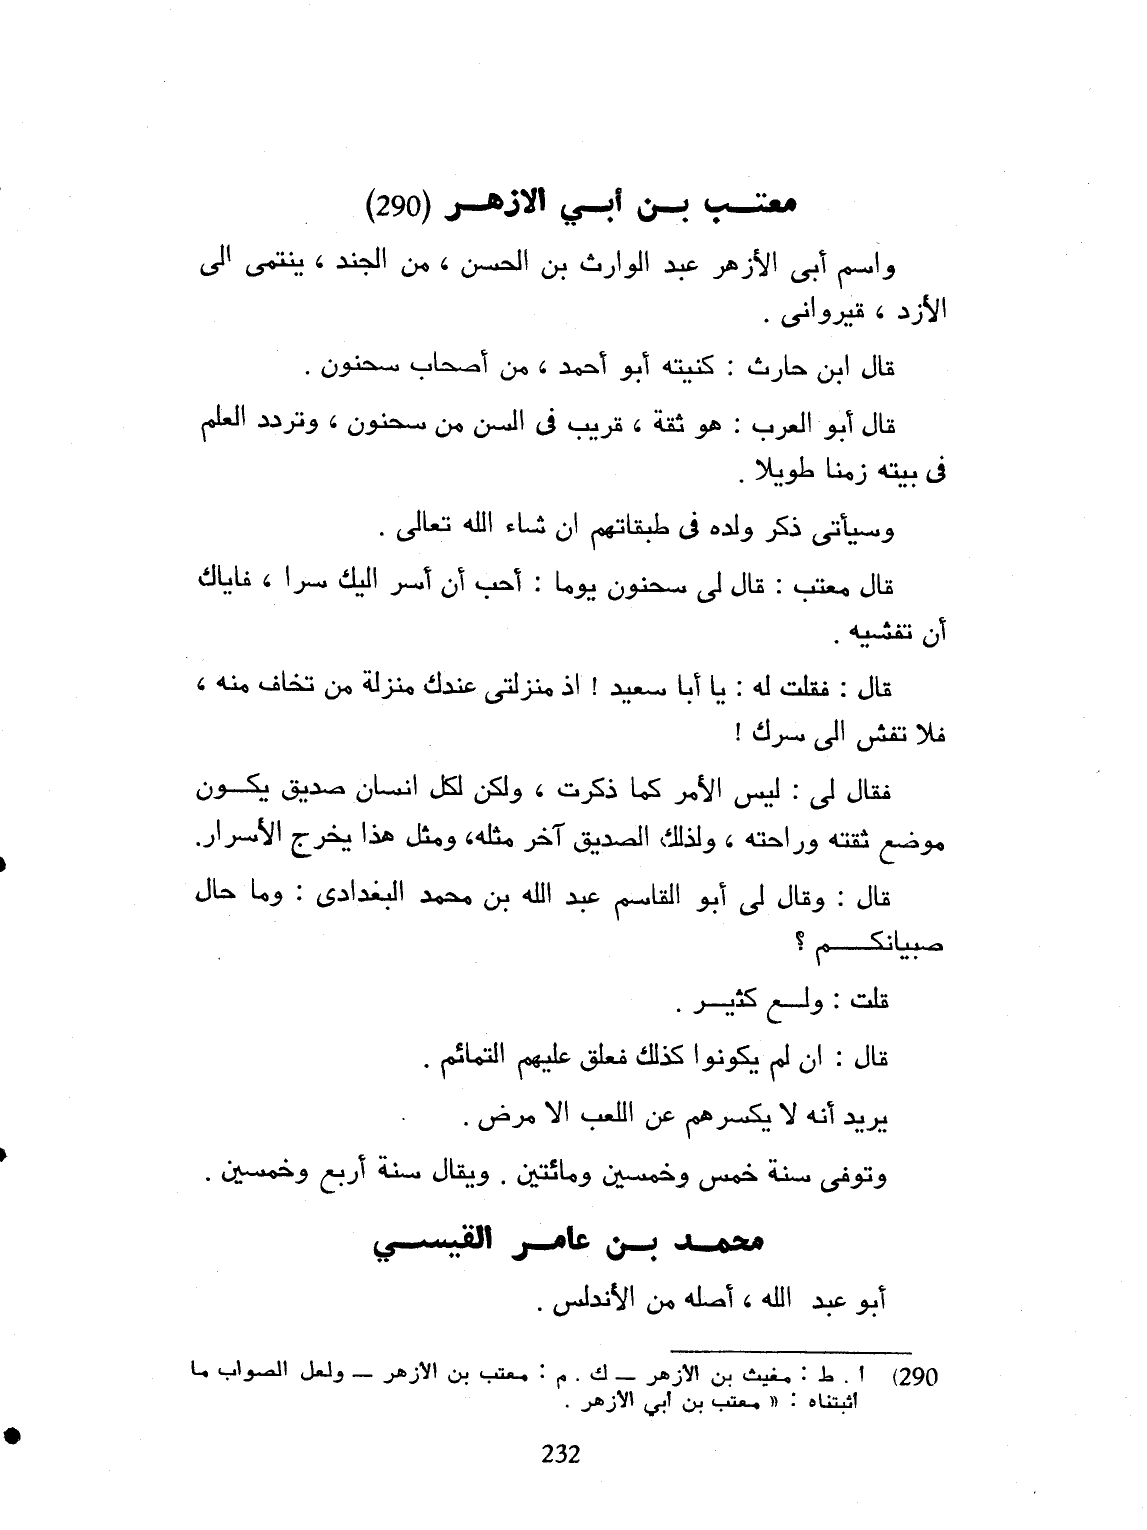 معتب بن أبي الازهر (290)
واسم أبى الأزهر عبد الوارث بن الحسن ، من الجند ، ينتمى الى
الأزد ، قيروانى .
قال ابن حارث : كنيته أبو أحمد ، من أصحاب سحنون .
قال أبو العرب : هو ثقة ، قريب فى السن من سحنون ، وتردد العلم
فى بيته زمنا طويلا .
وسيأتى ذكر ولده فى طبقاتهم ان شاء الله تعالى .
قال معتب : قال لى سحنون يوما : أحب أن أسر اليك سرا ، فاياك
أن تفشيه .
قال : فقلت له : يا أبا سعيد ! اذ منزلتى عندك منزلة من تخاف منه ،
فلا تفش الى سرك !
فقال لى : ليس الأمر كما ذكرت ، ولكن لكل انسان صديق يكون
موضع ثقته وراحته ، ولذلك الصديق آخر مثله، ومثل هذا يخرج الأسرار.
قال : وقال لى أبو القاسم عبد الله بن محمد البغدادى : وما حال
صبيانكم ؟
قلت : ولع كثير .
قال : ان لم يكونوا كذلك فعلق عليهم التمائم .
يريد أنه لا يكسرهم عن اللعب الا مرض .
وتوفى سنة خمس وخمسين ومائتين . ويقال سنة أربع وخمسين .
محمد بن عامر القيسي
أبو عبد الله ، أصله من الأندلس .
290) ا . ط : مغيث بن الازهر — ك . م : معتب بن الازهر — ولعل الصواب ما
اثبتناه : « معتب بن أبي الازهر .
232